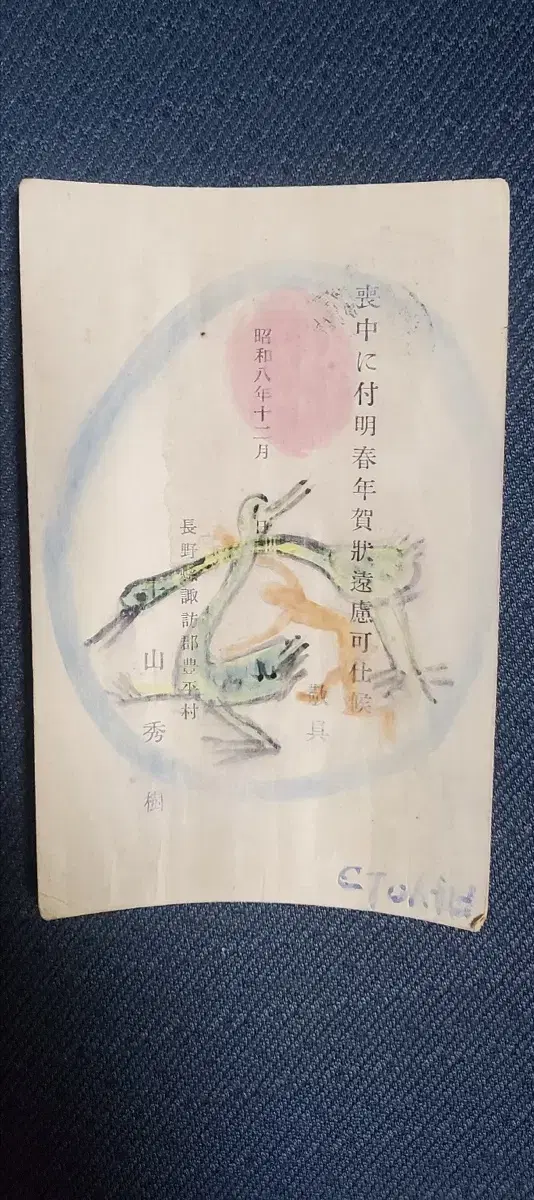 喪中に付明春年賀狀遠慮可仕候
敬具
昭和八年十二月 日
長野縣諏訪郡豊平村
山秀樹